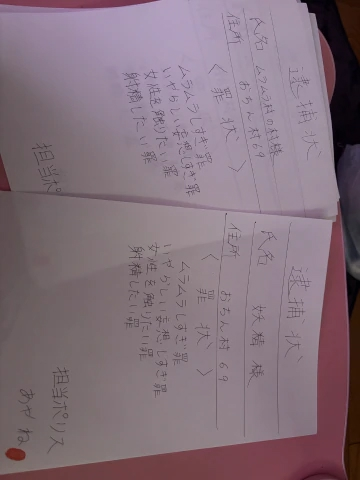 逮捕状
氏名 ムラムラ村の村様
住所 おちん村69
〈罪状〉
ムラムラしすぎ罪
いやらしい妄想しすぎ罪
女性を触りたい罪
射精したい罪
担当ポ
逮捕状
氏名 妖精様
住所 おちん村69
〈罪状〉
ムラムラしすぎ罪
いやらしい妄想しすぎ罪
女性を触りたい罪
射精したい罪
担当ポリス
あやね